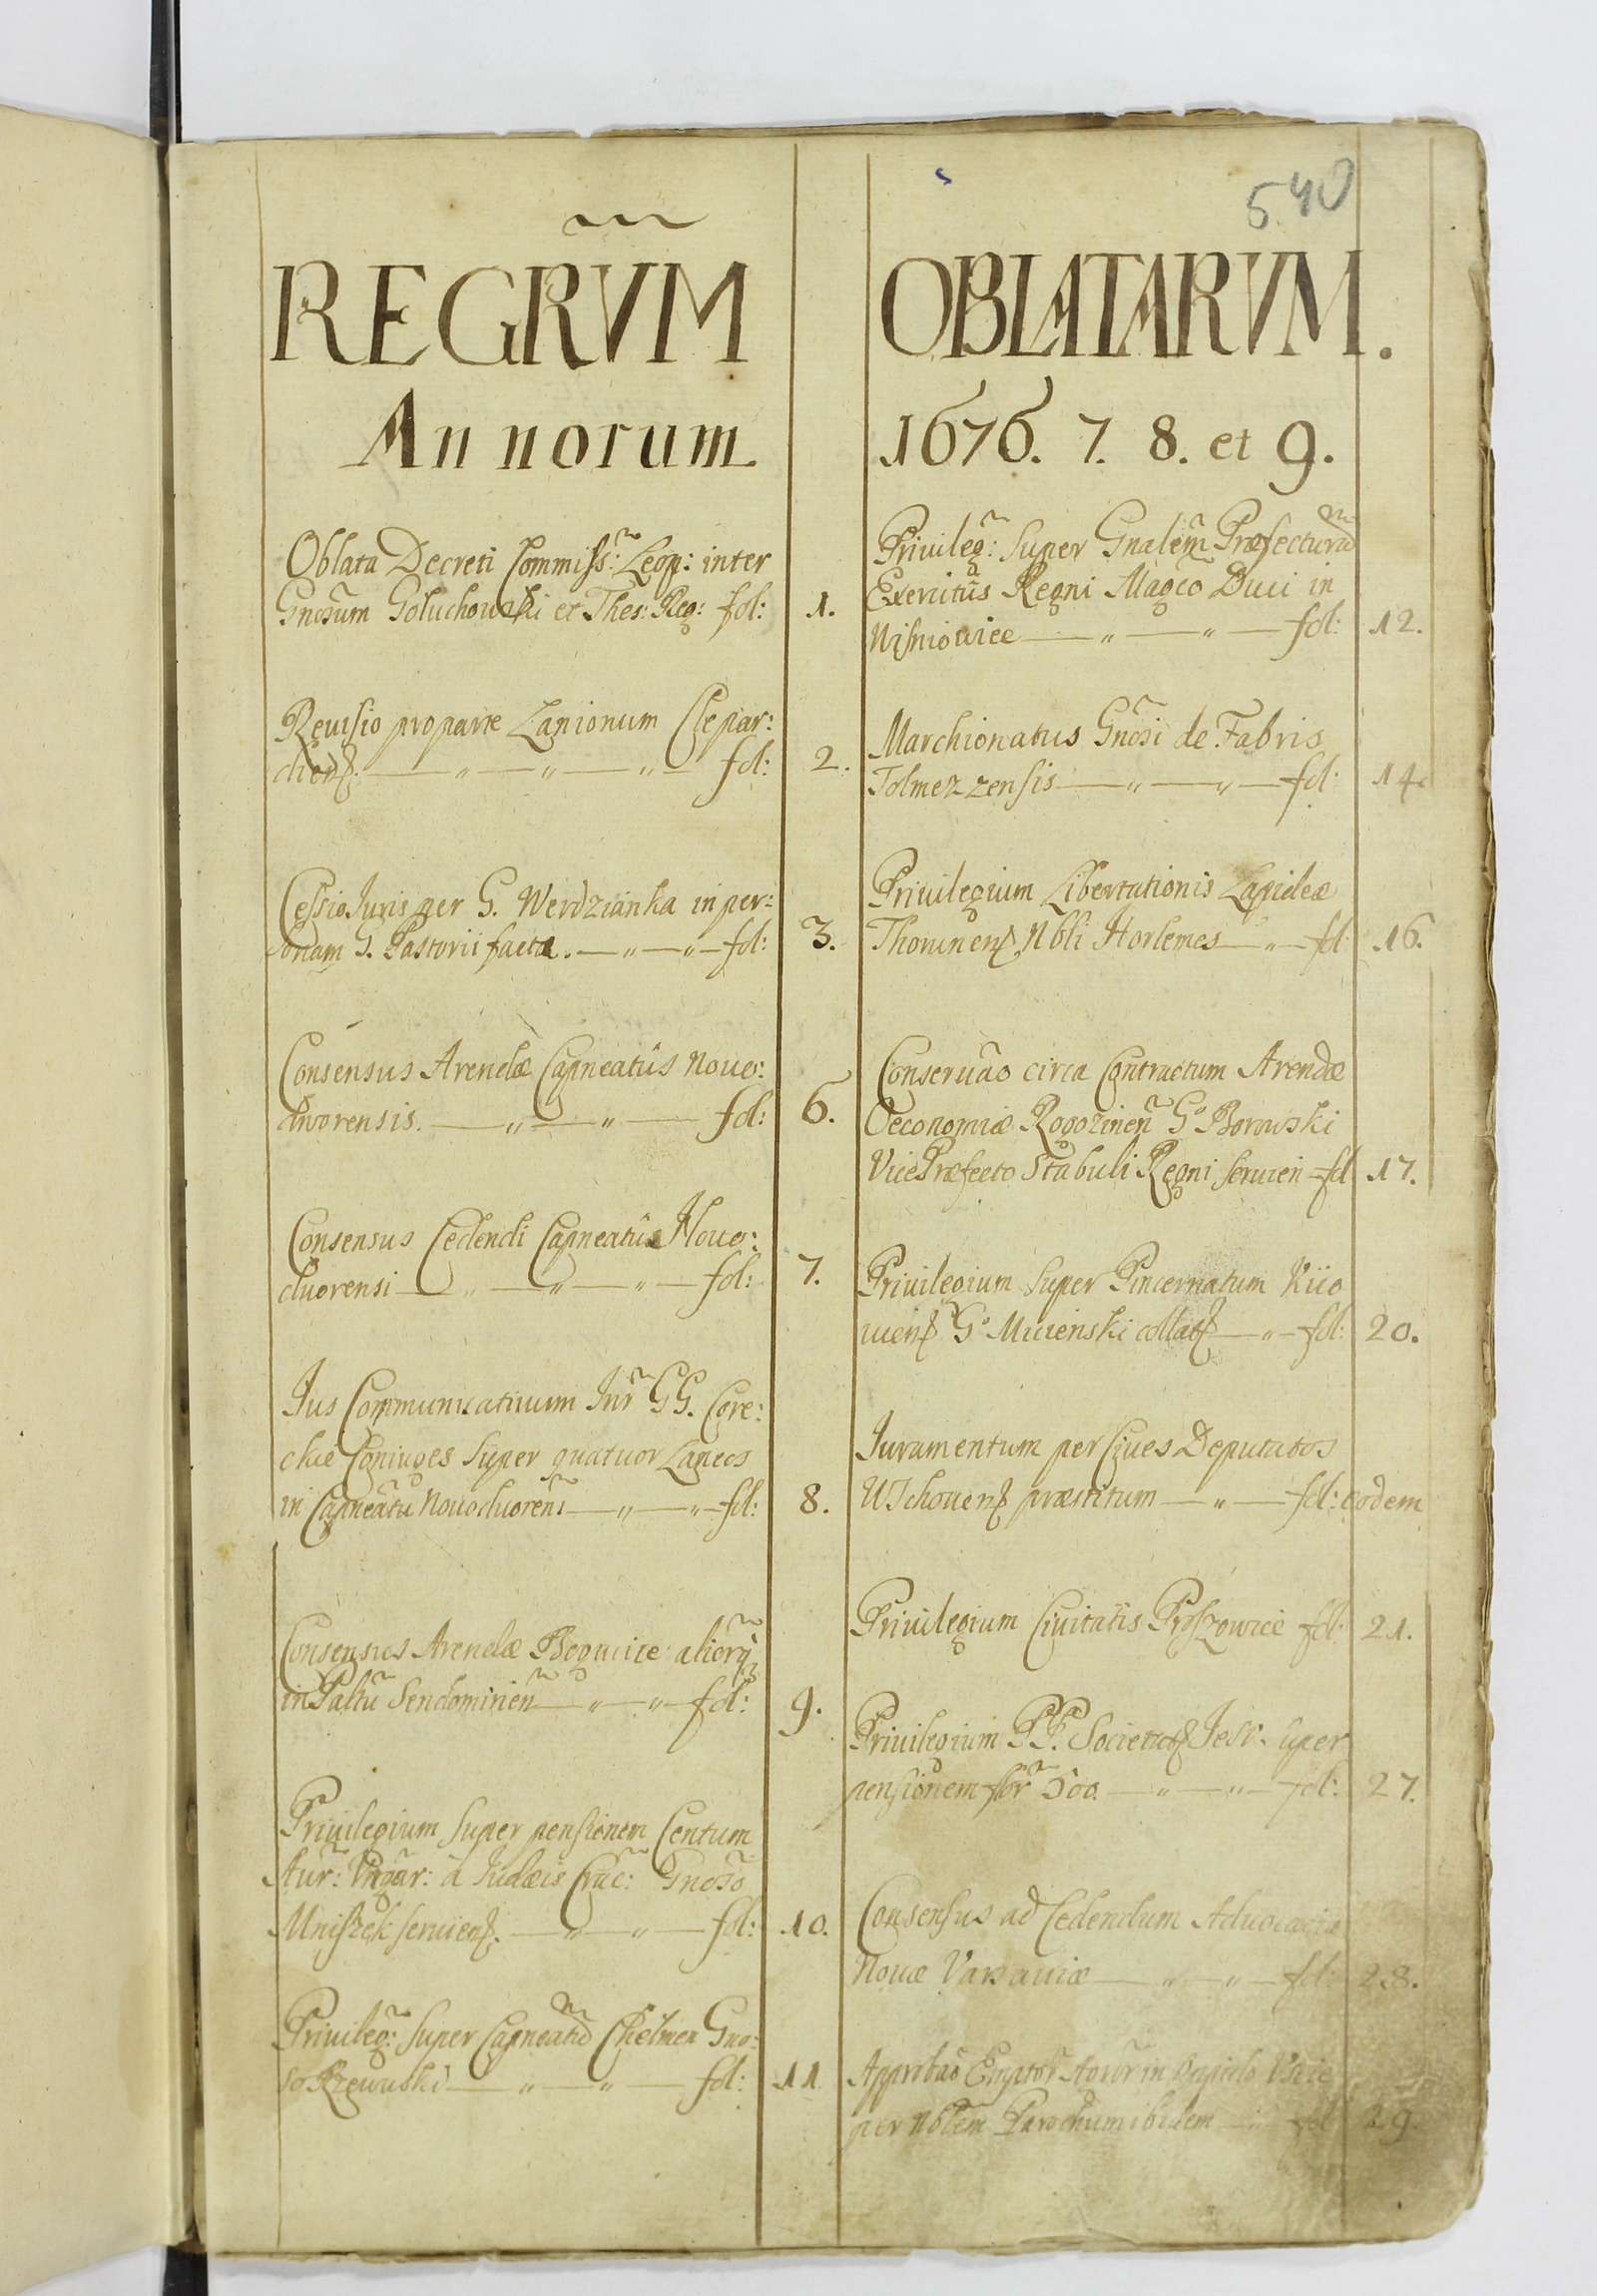 540
REGRVM OBLATARVM.
Annorum 1676. 7. 8. et 9.
Oblata Decreti Commiss: Leop: inter
Gnosum Goluchowski et Thes: Reg: fol: 1.
Reuisio pro parte Lanionum Clepar:
diens. fol: 2.
Cessio Juris per G. Werdzianka in per:
sonam G. Pastorii facta. fol: 3.
Consensus Arendæ Capneatus Nouo:
dworensis. fol: 6.
Consensus Cedendi Capneatus Nouo:
duorensi fol: 7.
Jus Communicatiuum Inr GG. Core:
ckie Coniuges super quatuor Laneos
in Capneatu Nouoduorens fol: 8.
Consensus Arendæ Bogucice aliorq
in Paltu Sendomirien fol: 9.
Priuilegium super pensionem Centum
Aur: Vngar: à Judæis Crac: Gnoso
Mniszek seruiens. fol: 10.
Priuileg: super Capneatu Chelmen Gno:
so Rzewuski fol: 11
Priuileg: super Gnalem Præfecturam
Exercitus Regni Magco Duci in
Wisniowice fol: 12.
Marchionatus Gnosi de Fabris
Tolmezzensis fol: 14.
Priuilegium Libertationis Lapideæ
Thorunens Nbli Horlemes fol 16.
Conseruao circa Contractum Arendæ
Oeconomiæ Rogozinen Go Borowski
Vice Præfecto Stabuli Regni seruien fol 17.
Priuilegium super Pincernatum Kiio
uiens Go Mucienski collat fol: 20.
Juramentum per Ciues Deputatos
Wschouens præstitum fol: eodem
Priuilegium Ciuitatis Proszowice fol: 21.
Priuilegium PP. Societat Jesv. super
pensionem flor 500. fol: 27.
Consensus ad Cedendum Aduocatiæ
Nouæ Varsauiæ fol: 28.
Approbao in
per Nblem Parochum ibidem fol 29.